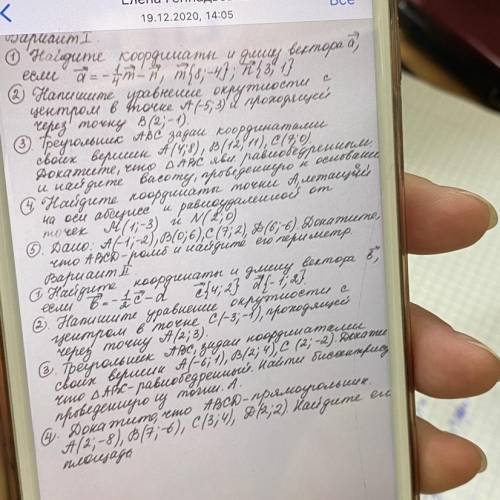 19.12.2020, 14:05
Все
Вариант I.
① Найдите координаты и длину вектора a⃗,
если a⃗ = m⃗ - n⃗, m⃗{8;-4}; n⃗{3;1}
② Напишите уравнение окружности с
центром в точке A(-5;3) и проходящей
через точку B(2;-1).
③ Треугольник ABC задан координатами
своих вершин A(4;8), B(12;11), C(7;0)
Докажите, что △ABC явл. равнобедренным
и найдите высоту, проведенную к основанию
④ Найдите координаты точки A, лежащей
на оси абсцисс и равноудаленной от
точек M(1;-3) и N(2;0)
⑤. Дано: A(-1;-2), B(0;6), C(7;2), D(6;-6). Докажите,
что ABCD-ромб и найдите его периметр.
Вариант II
① Найдите координаты и длину вектора b⃗,
если b⃗ = -½c⃗ - d c⃗{4;2} d⃗{-1;2}.
②. Напишите уравнение окружности с
центром в точке C(-3;-1), проходящей
через точку A(2;3).
③. Треугольник ABC задан координатами
своих вершин A(-6;1), B(2;4), C(2;-2). Докажите
что △ABC-равнобедренный. Найти биссектрису
проведенную из точки A.
④. Докажите, что ABCD-прямоугольник.
A(2;-8), B(7;-6), C(3;4), D(2;2). Найдите его
площадь